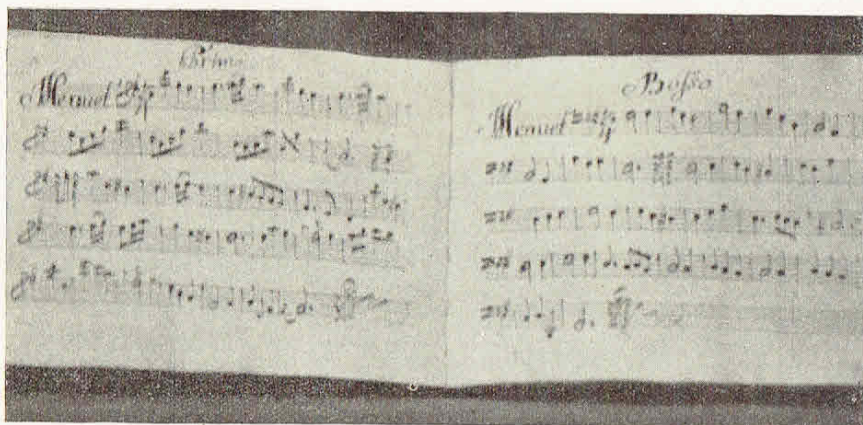 Primo
Menuet
Baſso
Menuet